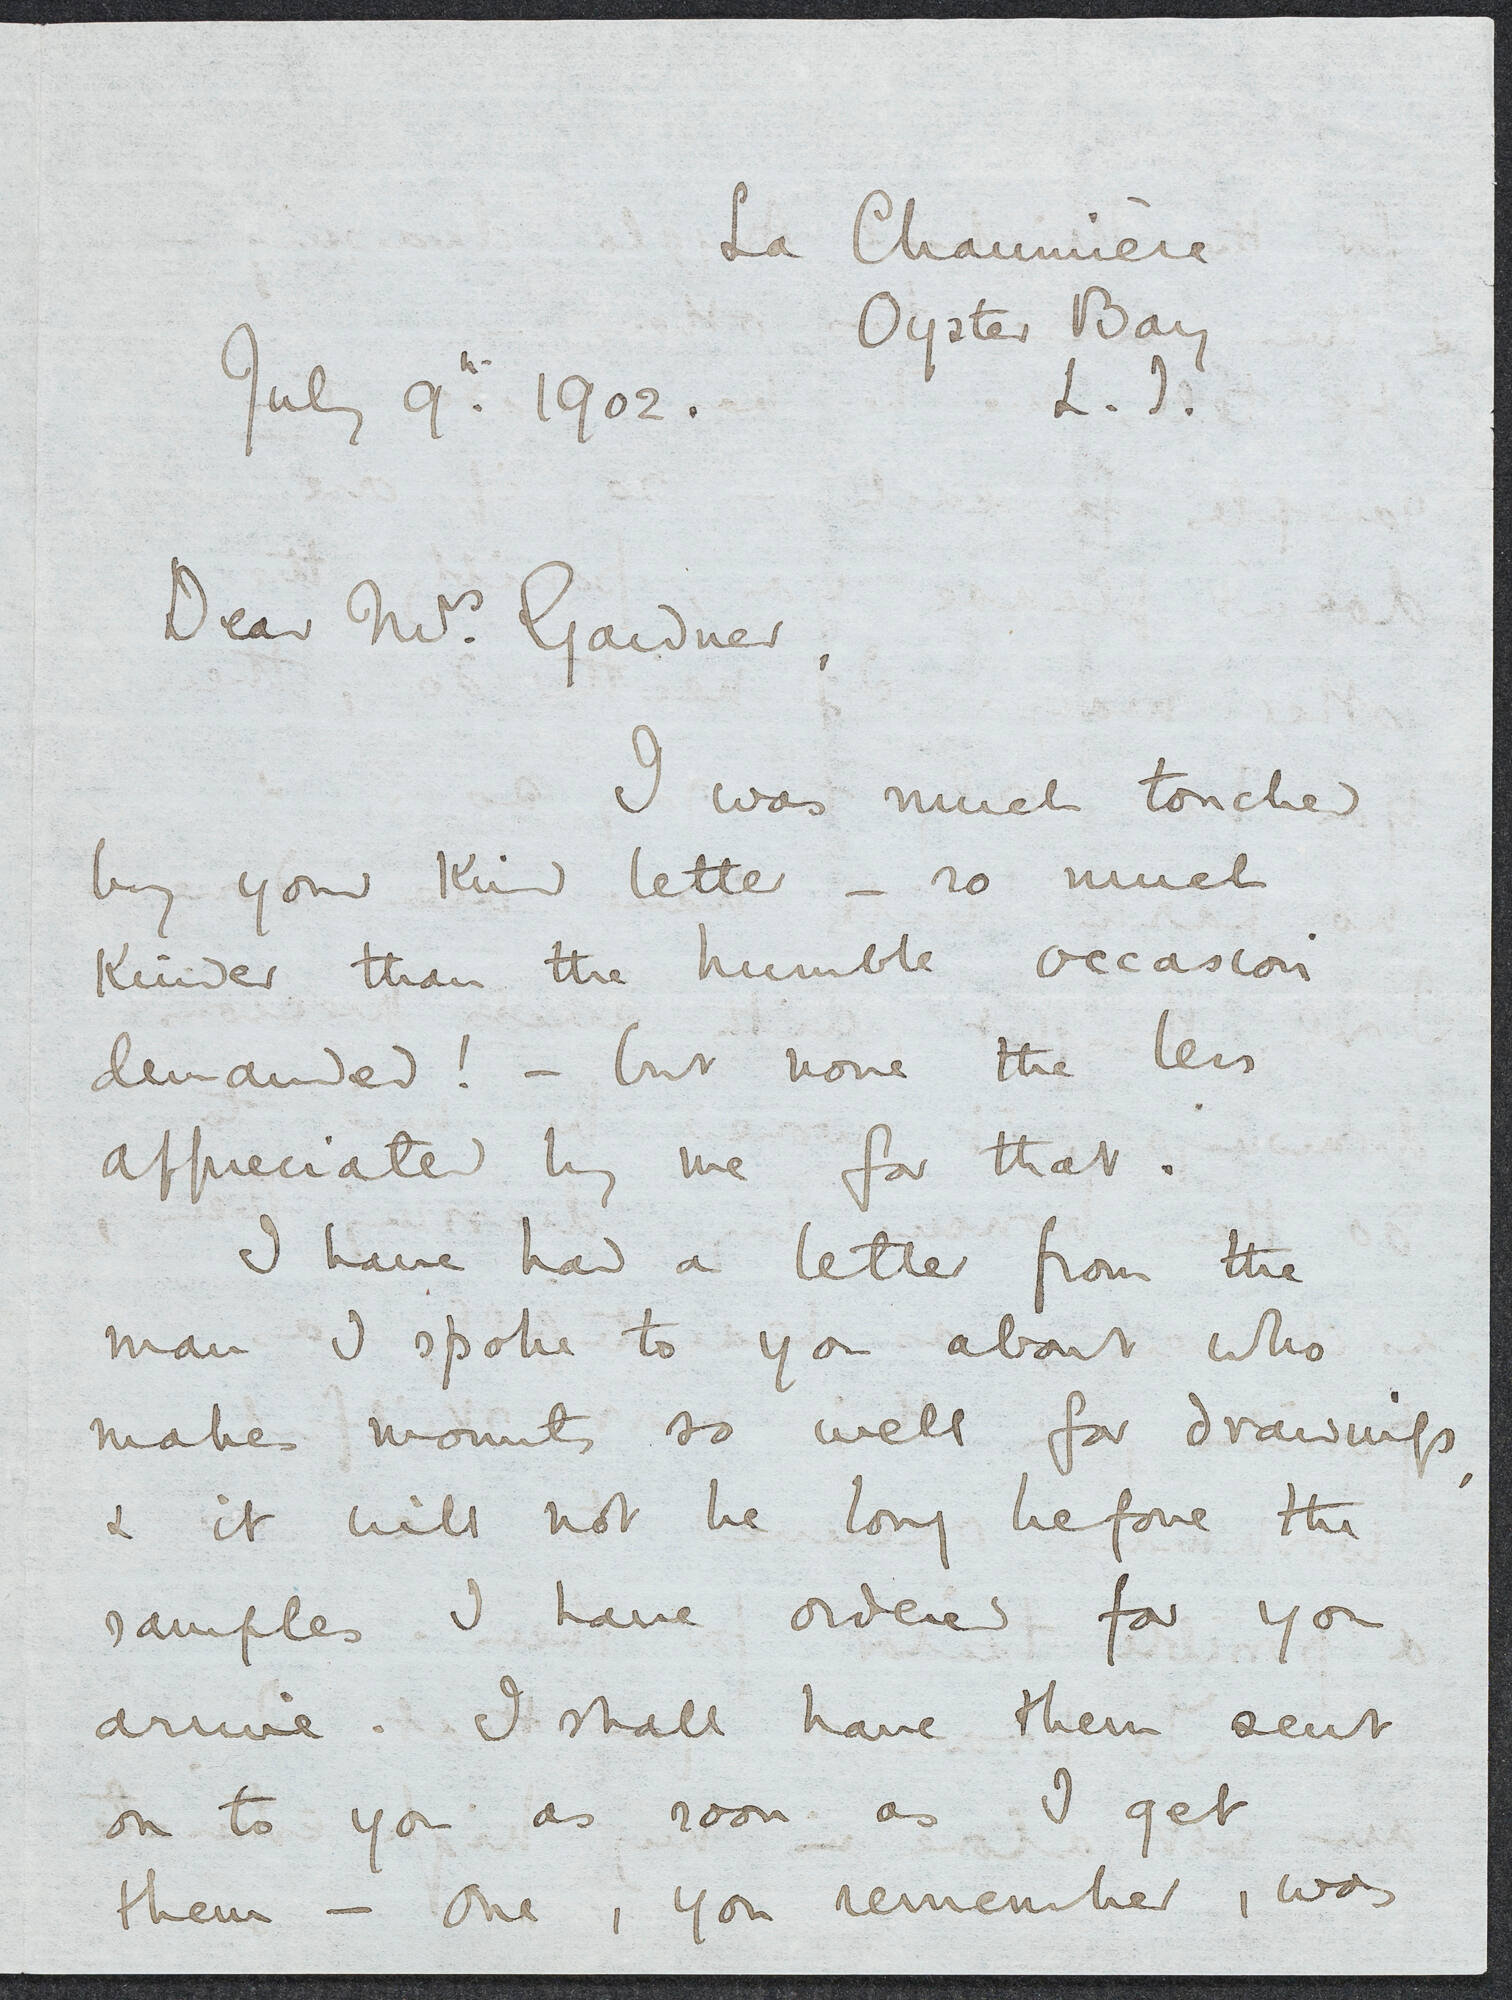 La Chaumière
Oyster Bay
L. I.
July 9th. 1902.
Dear Mrs. Gardner,
I was much touched
by your kind letter – so much
kinder than the humble occasion
demanded! – but none the less
appreciated by me for that.
I have had a letter from the
man I spoke to you about who
makes mounts so well for drawings,
& it will not be long before the
samples I have ordered for you
arrive. I shall have them sent
on to you as soon as I get
them – one, you remember, was